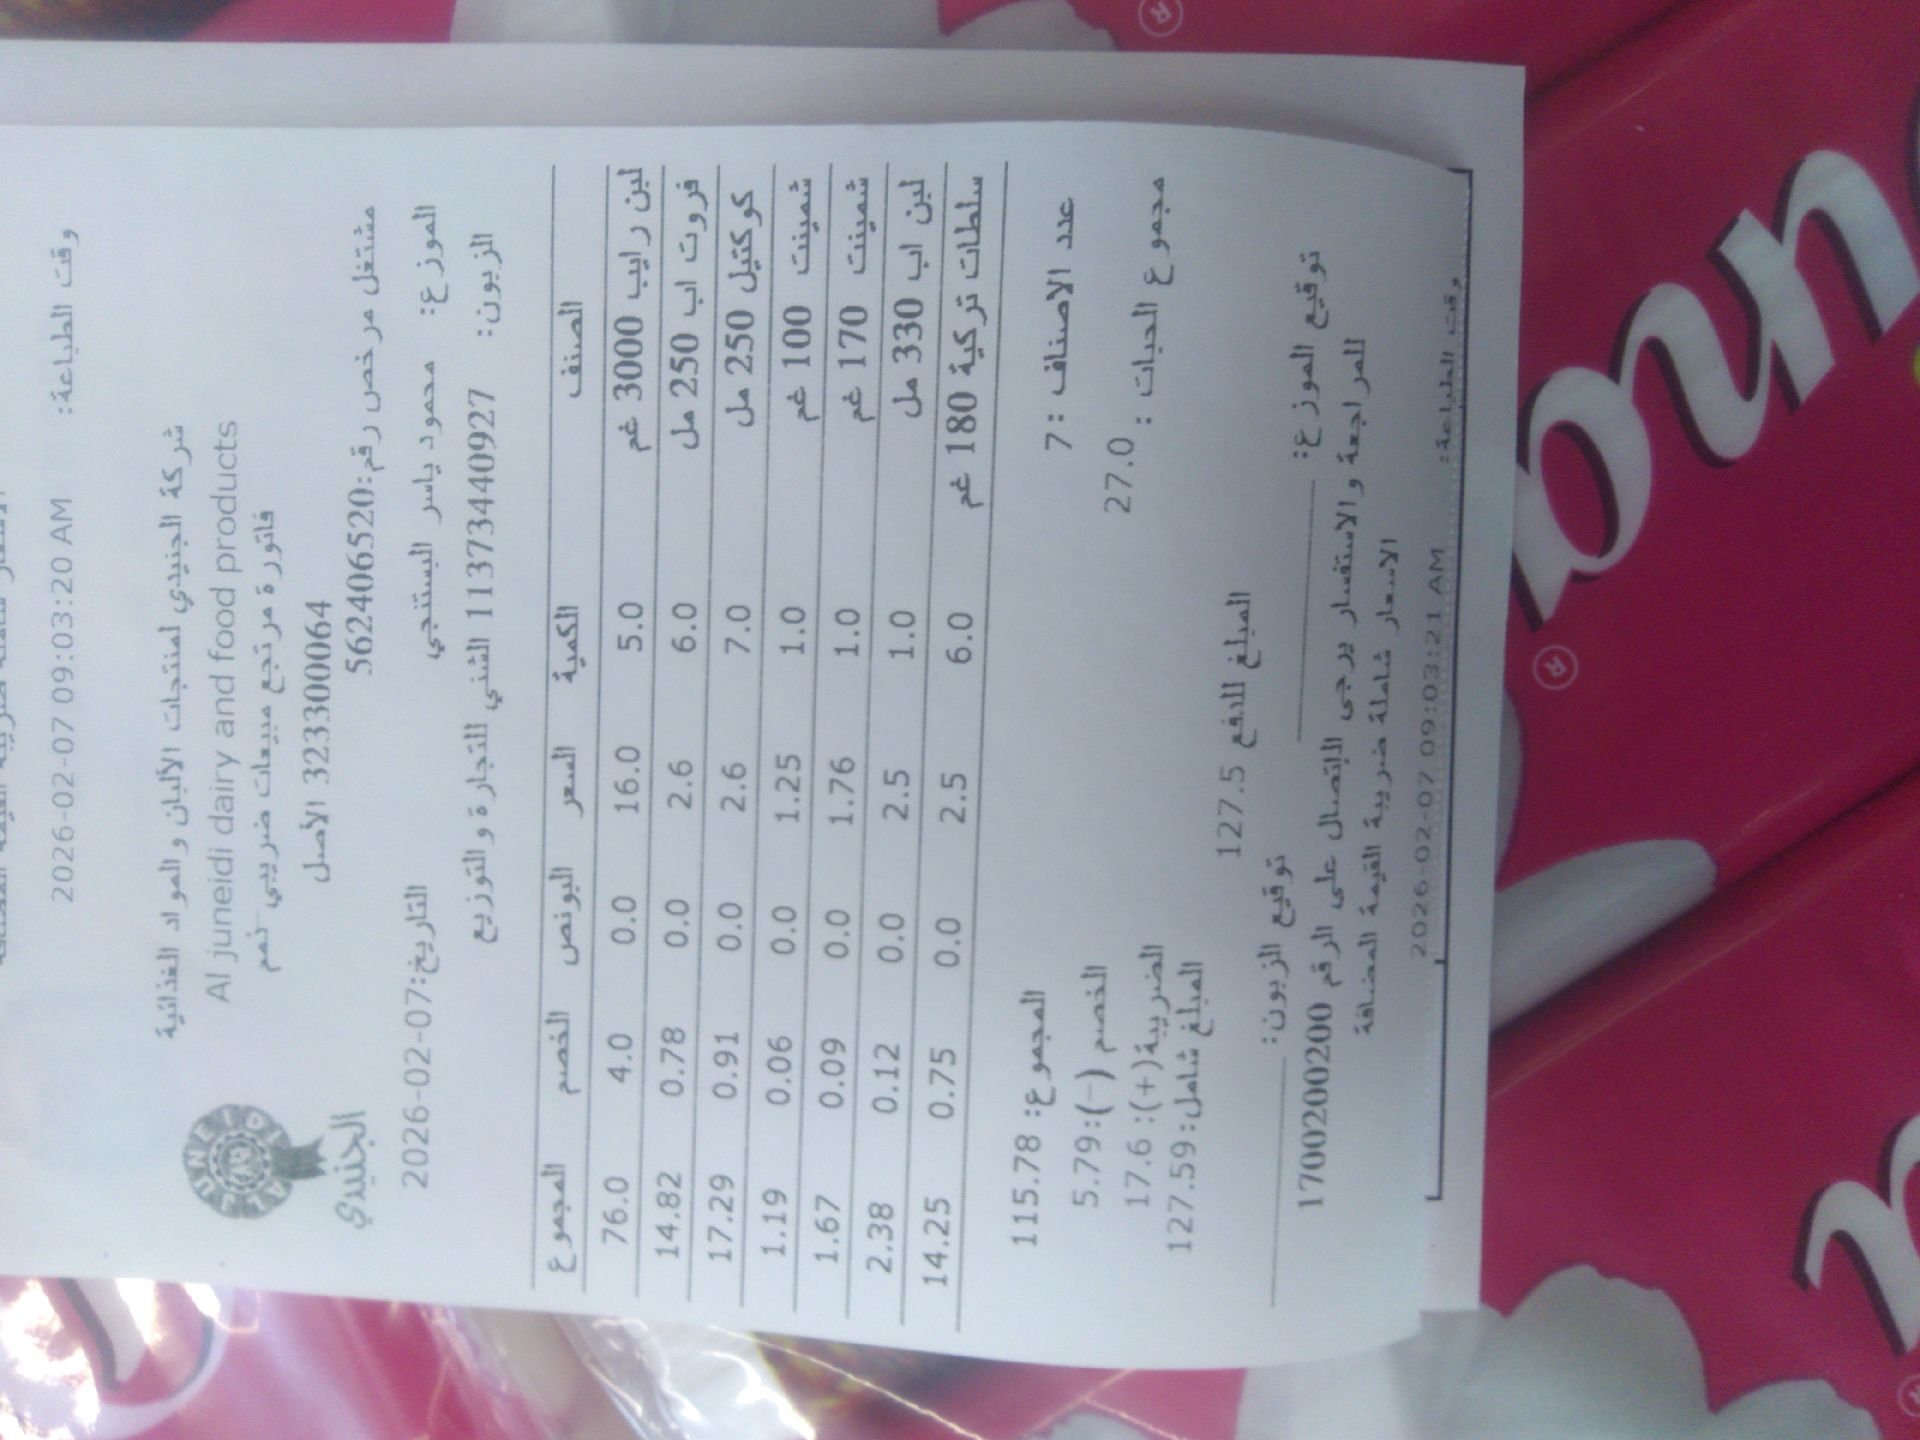 وقت الطباعة: 2026-02-07 09:03:20 AM
شركة الجنيدي لمنتجات الألبان والمواد الغذائية
Al juneidi dairy and food products
فاتورة مرتجع مبيعات ضريبي-ذمم
323300064 الأصل
AL JUNEIDI
الجنيدي
مشتغل مرخص رقم:562406520
الموزع: محمود ياسر البستنجي
التاريخ:2026-02-07
الزبون: 1137344092 الشني للتجارة والتوزيع
الصنف الكمية السعر البونص الخصم المجموع
لبن رايب 3000 غم 5.0 16.0 0.0 4.0 76.0
فروت اب 250 مل 6.0 2.6 0.0 0.78 14.82
كوكتيل 250 مل 7.0 2.6 0.0 0.91 17.29
شمينت 100 غم 1.0 1.25 0.0 0.06 1.19
شمينت 170 غم 1.0 1.76 0.0 0.09 1.67
لبن اب 330 مل 1.0 2.5 0.0 0.12 2.38
سلطات تركية 180 غم 6.0 2.5 0.0 0.75 14.25
عدد الاصناف :7
المجموع: 115.78
مجموع الحبات : 27.0
الخصم (-):5.79
الضريبة(+): 17.6
المبلغ شامل:127.59
المبلغ للدفع 127.5
توقيع الموزع:
توقيع الزبون:
للمراجعة والاستفسار يرجى الإتصال على الرقم 1700200200
الاسعار شاملة ضريبة القيمة المضافة
وقت الطباعة: 2026-02-07 09:03:21 AM